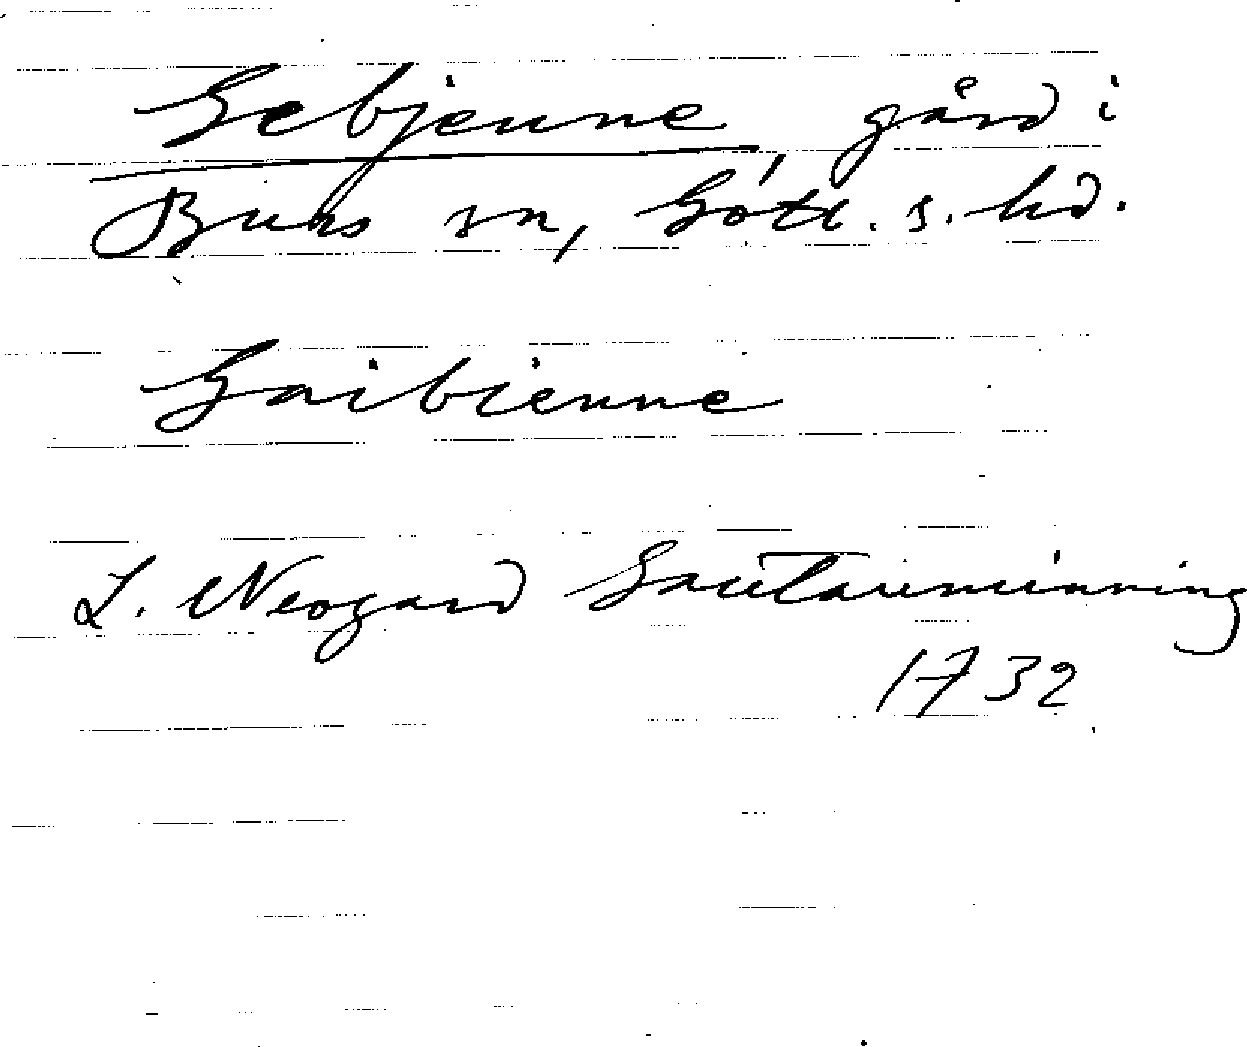 Gebjenne, gård i
Burs sn, Gotl. s. hd.
Gaibienne
L. Neogard Gautauminning
1732